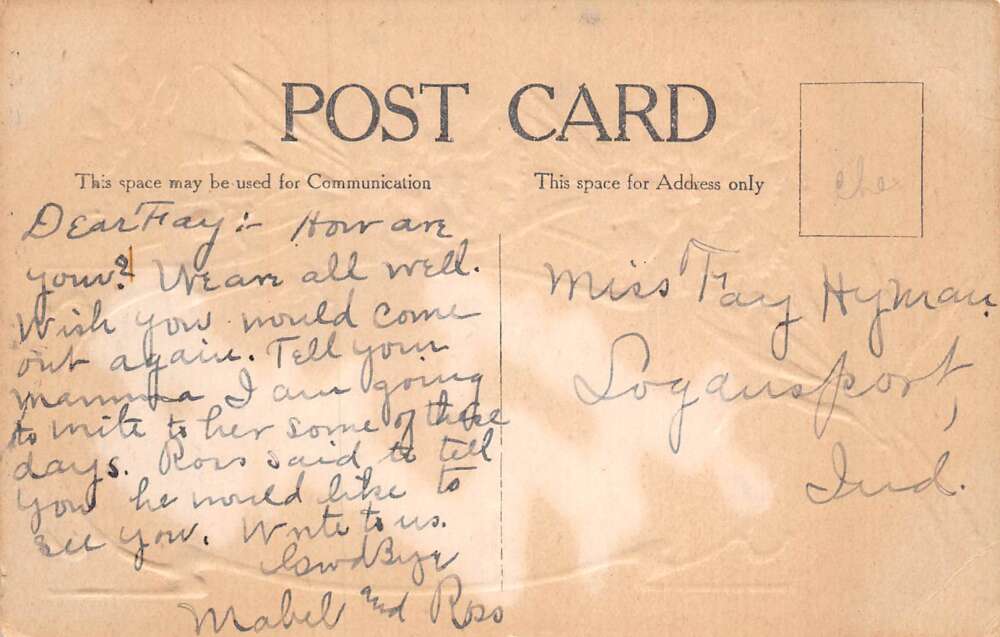 POST CARD
This space may be used for Communication
This space for Address only
Dear Fay:- How are
you? We are all well.
Wish you would come
out again. Tell your
mamma I am going
to write to her some of these
days. Ross said to tell
you he would like to
see you. Write to us.
Good Bye
Mabel and Ross
Miss Fay Hyman,
Logansport,
Ind.